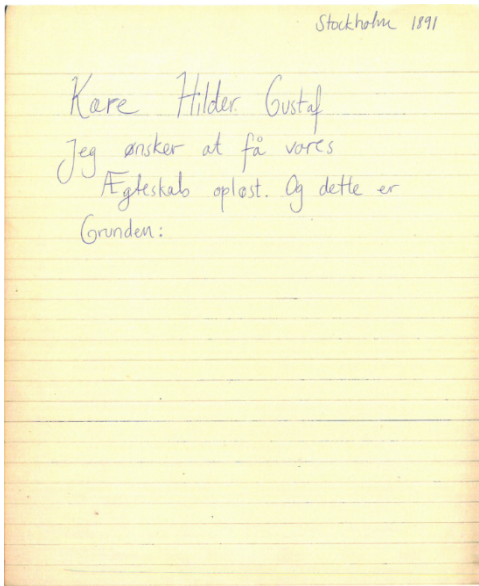 Stockholm 1891
Kære Hilder. Gustaf
Jeg ønsker at få vores
Ægteskab opløst. Og dette er
Grunden: